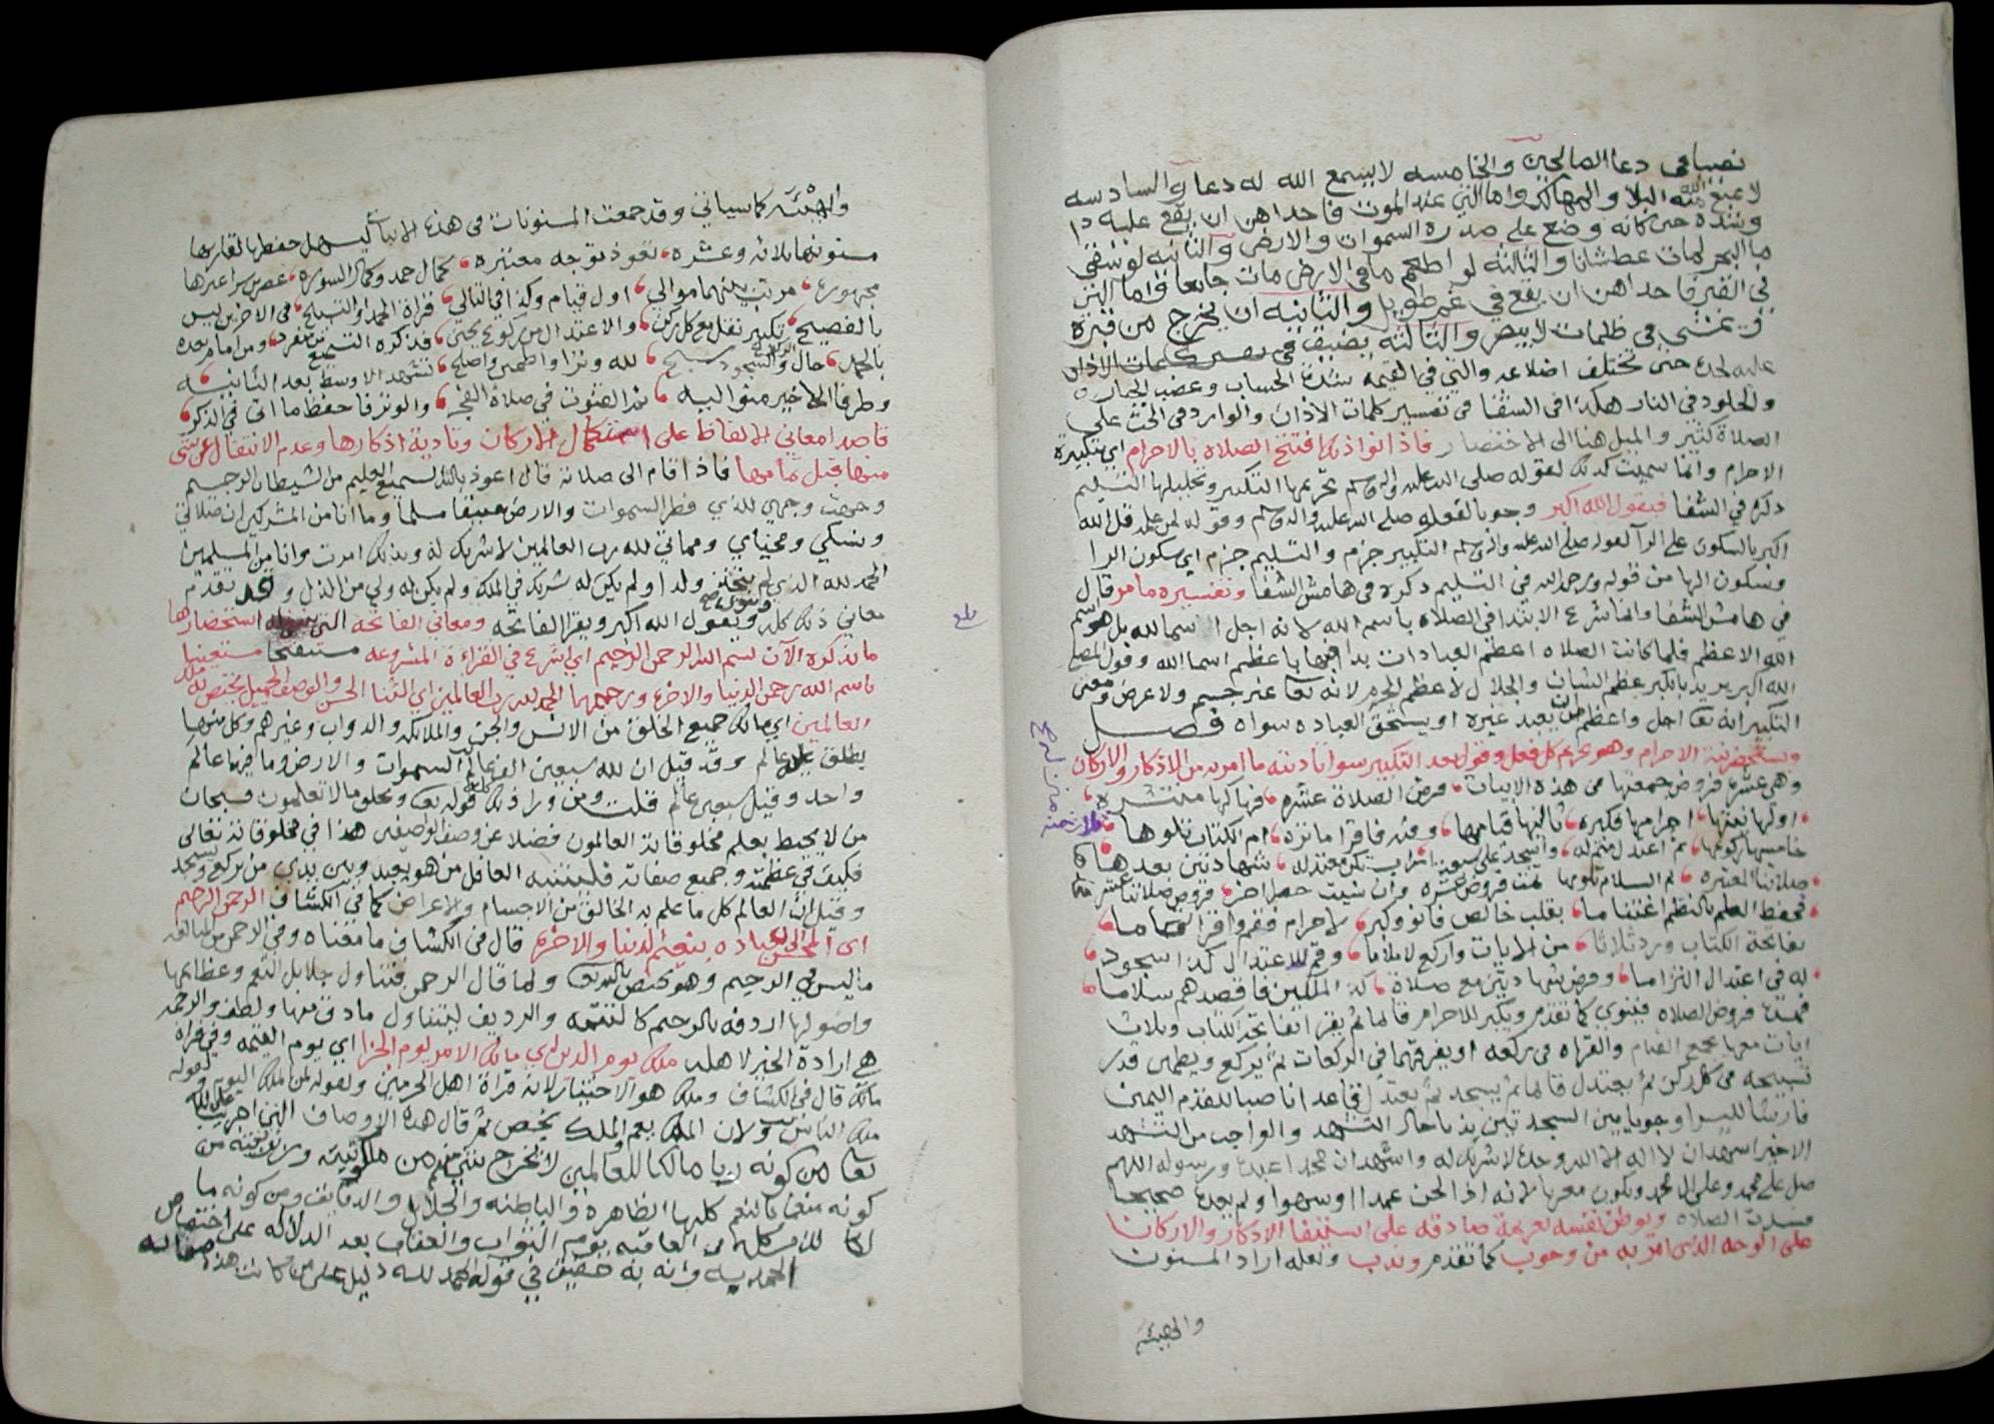 نصيبا في دعا الصالحين والخامسه لا يسمع الله له دعا والسادسه
لا يمنع الله منه البلا والمهالك واما التي عند الموت فاحداهن ان يقع عليه دا
وشدة حتى كانه وضع على صدره السموات والارض والثانيه لو سقي
ما البحر لمات عطشانا والثالثه لو اطعم ما في الارض مات جايعا واما التي
في القبر فاحداهن ان يقع في غم طويل والثانيه ان يخرج من قبره
ويمشي في ظلمات لا يبصر والثالثه يضيق
عليه لحده حتى تختلف اضلاعه والتي في القيمه شدة الحساب وغضب الجبار
والخلود في النار هكذا في الشفا في تفسير كلمات الاذان والوارد في الحث على
الصلاة كثير والميل هنا الى الاختصار فاذا نوا ذلك افتتح الصلاه بالاحرام اي بتكبيرة
الاحرام وانما سميت كذلك لقوله صلى الله عليه واله وسلم تحريمها التكبير وتحليلها التسليم
ذكره في الشفا فيقول الله اكبر وجوبا لقوله صلى الله عليه واله وسلم وقوله لمن علمه قل الله
اكبر بالسكون على الرا لقوله صلى الله عليه واله وسلم التكبير جزم والتسليم جزم اي سكون الرا
وسكون الها من قوله ورحمة الله في التسليم ذكره في هامش الشفا وتفسيره ما مر قال
في هامش الشفا وانما شرع الابتدا في الصلاه باسم الله لانه اجل اسما لله بل هو اسم
الله الاعظم فلما كانت الصلاه اعظم العبادات بدا فيها باعظم اسما الله وقول المصلي
الله اكبر يريد بالكبر عظم الشان والجلال لا عظم الجرم لانه تعا غير جسم ولا عرض ومعنى
التكبير انه تعا اجل واعظم من ان يعبد غيره او يستحق العباده سواه فصل
ويستحضر نية الاحرام وهو تحريم كل فعل وقول بعد التكبير سوا تادية ما امر به من الاذكار والاركان
وهي عشرة فروض جمعتها في هذه الابيات فرض الصلاة عشره فهاكها منتشره
اولها نيتها احرامها فكبره ثالثها قيامها وفيه فاقرا ما تره ام الكتاب تتلوها
خامسها ركوعها ثم اعتدل واسجد على سبعة شهادتين بعدها
صلاتنا المعتبره ثم السلام تمت فروض عشره وان شيت حصرا اخر فروض صلاتنا عشر
فحفظ العلم بالنظم اغتناما بقلب خالص فانو وكبر لاحرام فقم واقرا
بفاتحة الكتاب وزد ثلاثا من الايات واركع وقم للاعتدال كذا سجود
له في اعتدال التزاما وفرض شهادتين مع صلاة كذا الملكين فاقصدهم سلاما
فهذه فروض الصلاه فينوي كما تقدم ويكبر للاحرام قايما ثم يقرا فاتحة الكتاب وثلاث
ايات معها يجمع القيام والقراه في ركعه او يفرقهما في الركعات ثم يركع ويطمن قدر
تسبيحه في كل ركن ثم يعتدل قايما ثم يسجد ثم يعتدل قاعدا ناصبا للقدم اليمنى
فارشا لليسرا وجوبا بين السجدتين ندبا حال التشهد والواجب من التشهد
الاخير اشهد ان لا اله الا الله وحده لا شريك له واشهد ان محمدا عبده ورسوله اللهم
صل على محمد وعلى ال محمد ويكون معربا لانه اذا لحن عمدا او سهوا ولم يعده صحيحا
فسدت الصلاه ويوطن نفسه بعزيمة صادقه على استيفا الاذكار والاركان
على الوجه الذي امر به من وجوب كما تقدم وندب ولعله اراد المسنون
والهيئه
والهيئه كما سياتي وقد جمعت المسنونات في هذه الابيات ليسهل حفظها لقاريها
مسنونها ثلاثه وعشره تعوذ توجه معتبره كمال حمد وكمال السوره عصر سرا غيرها
مجهوره مرتب بينهما موالي اول قيام وكذا في التالي قراة الحمد او التسبيح في الاخرين ليس
بالفصيح تكبير نقل مع كل ركن والاعتدال من ركوع يحني فذكره التسميع من منفرد ومن امام بعده
بالحمد حال الركوع والسجود سبح لله ونزا واطمين واصلح تشهد الاوسط بعد الثانيه
وطرفا الاخير منه واليه ثم القنوت في صلاة الفجر والوتر فاحفظ ما اتى في الذكر
قاصدا معاني الالفاظ على استكمال الاركان وتادية اذكارها وعدم الانتقال عن شي
منها قبل تمامها فاذا قام الى صلاته قال اعوذ بالله السميع العليم من الشيطان الرجيم
وجهت وجهي للذي فطر السموات والارض حنيفا مسلما وما انا من المشركين ان صلاتي
ونسكي ومحياي ومماتي لله رب العالمين لا شريك له وبذلك امرت وانا من المسلمين
الحمد لله الذي لم يتخذ ولدا ولم يكن له شريك في الملك ولم يكن له ولي من الذل وقد تقدم
معاني ذلك كله ويقول الله اكبر ويقرا الفاتحه ومعاني الفاتحه التي استحضارها
ما نذكره الآن بسم الله الرحمن الرحيم اي اشرع في القراءة المشروعه مستفتحا مستعينا
باسم الله رحمن الدنيا والاخره ورحيمهما الحمد لله رب العالمين اي الثنا الحسن والوصف الجميل يختص لله ملك
العالمين اي مالك جميع الخلق من الانس والجن والملائكه والدواب وغيرهم وكل منها
يطلق عليه عالم وقد قيل ان لله سبعين الف عالم السموات والارض وما فيها عالم
واحد وقيل عالم قلت ومن ورا ذلك كله قوله تعا ويخلق ما لا تعلمون فسبحان
من لا يحيط بعلم مخلوقاته العالمون فضلا عن وصف الواصفين هذا في مخلوقاته تعالى
فكيف في عظمته وجميع صفاته فلينتبه الغافل من هو يعبد وبين يدي من يركع ويسجد
وقيل ان العالم كل ما علم به الخالق من الاجسام والاعراض كما في الكشاف الرحمن الرحيم
اي المحسن الى عباده بنعيم الدنيا والاخره قال في الكشاف ما معناه وفي الرحمن من المبالغه
ما ليس في الرحيم وهو يختص بالله تعا ولما قال الرحمن فتناول جلايل النعم وعظايمها
واصولها اردفه بالرحيم كالتتمه والرديف ليتناول ما دق منها ولطف والرحمه
هي ارادة الخير لاهلها ملك يوم الدين اي مالك الامر يوم الجزا اي يوم القيمه وفي قراة
مالك قال في الكشاف وملك هو الاختيار لانه قراة اهل الحرمين ولقوله لمن الملك اليوم ولقوله
ملك الناس ولان الملك يعم والملك يخص ثم قال هذه الاوصاف التي اجريت على الله
تعا من كونه ربا مالكا للعالمين لا يخرج منهم شي من ملكوته وربوبيته ومن
كونه منعما بالنعم كلها الظاهرة والباطنه والجلايل والدقايق ومن كونه مالكا
للامر كله في العاقبه يوم الثواب والعقاب بعد الدلاله على اختصاص
الحمد به وانه به حقيق في قوله الحمد لله دليل على من كانت هذه صفاته